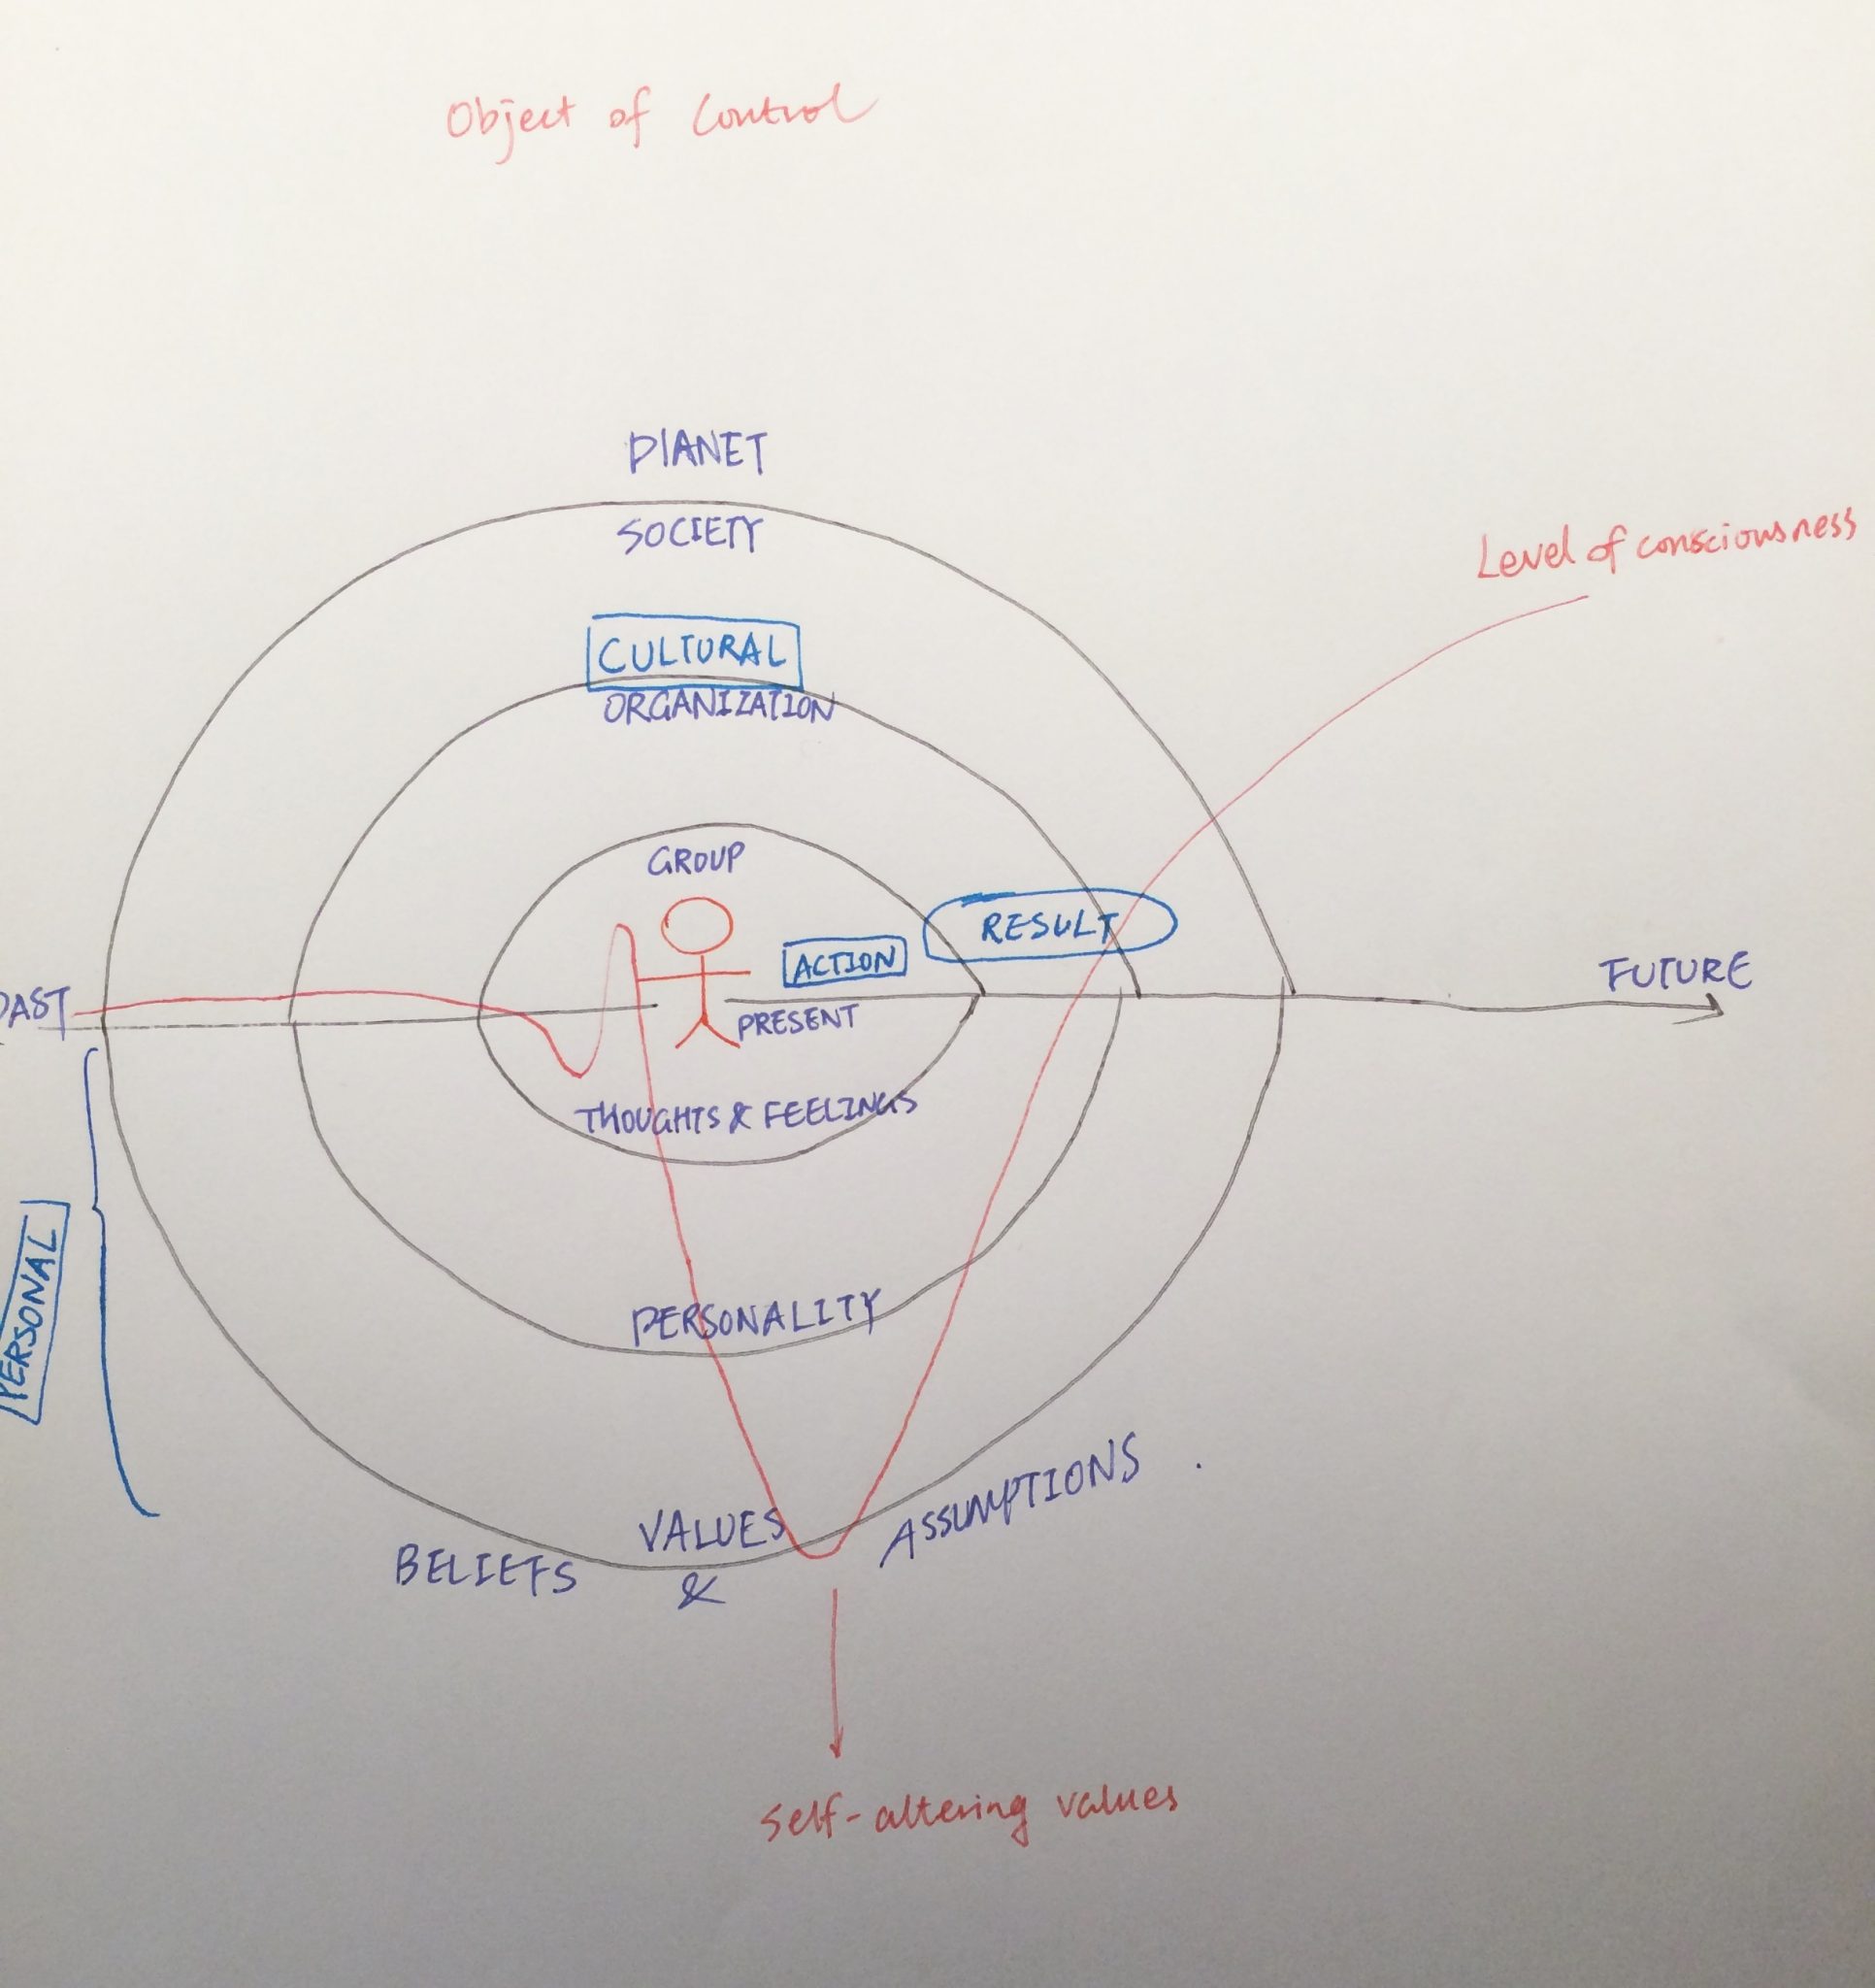 Object of Control
PLANET
SOCIETY
Level of consciousness
CULTURAL
ORGANIZATION
GROUP
RESULT
ACTION
PAST
FUTURE
PRESENT
THOUGHTS & FEELINGS
PERSONAL
PERSONALITY
VALUES
ASSUMPTIONS
BELIEFS
&
self-altering values